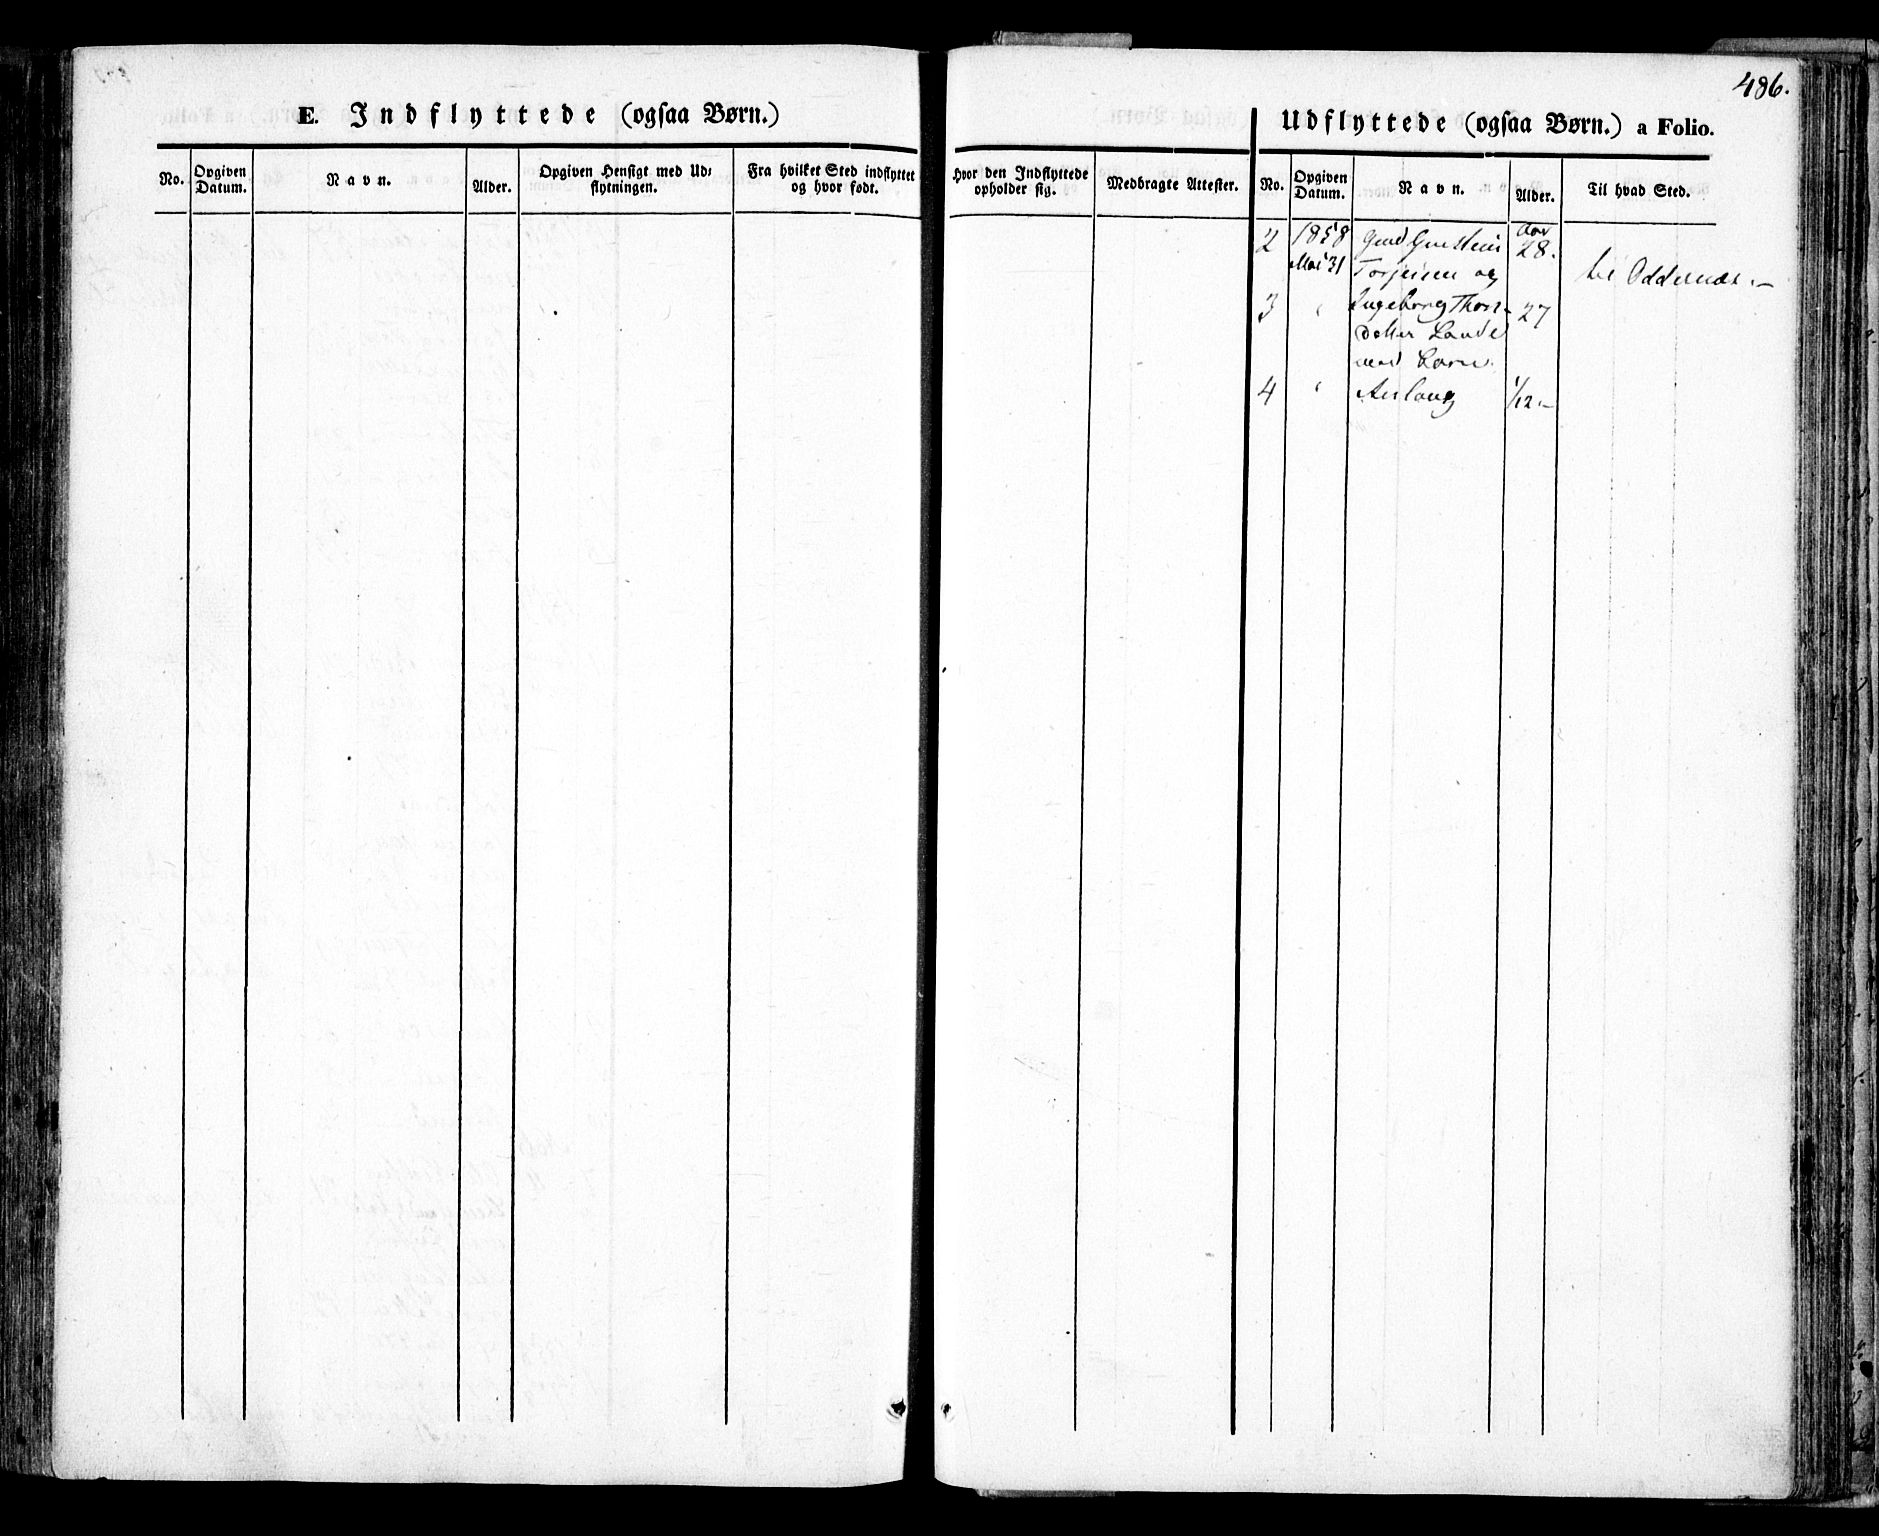 486.
E. Indflyttede (ogsaa Børn.)
Udflyttede (ogsaa Børn.) a Folio.
No.
Opgiven Datum.
Navn.
Alder.
Opgiven Hensigt med Ud⸗
flytningen.
Fra hvilket Sted indflyttet
og hvor født.
Hvor den Indflyttede
opholder sig.
Medbragte Attester.
No.
Opgiven
Datum.
Navn.
Alder.
Til hvad Sted.
2 1858 Gunstein Aar 28.
Mai 31 Torjeisen og til Oddernæs.–
3 " Ingeborg Thors- 27
datter Lande
med Barn.
4 " Aslaug 1/12.–